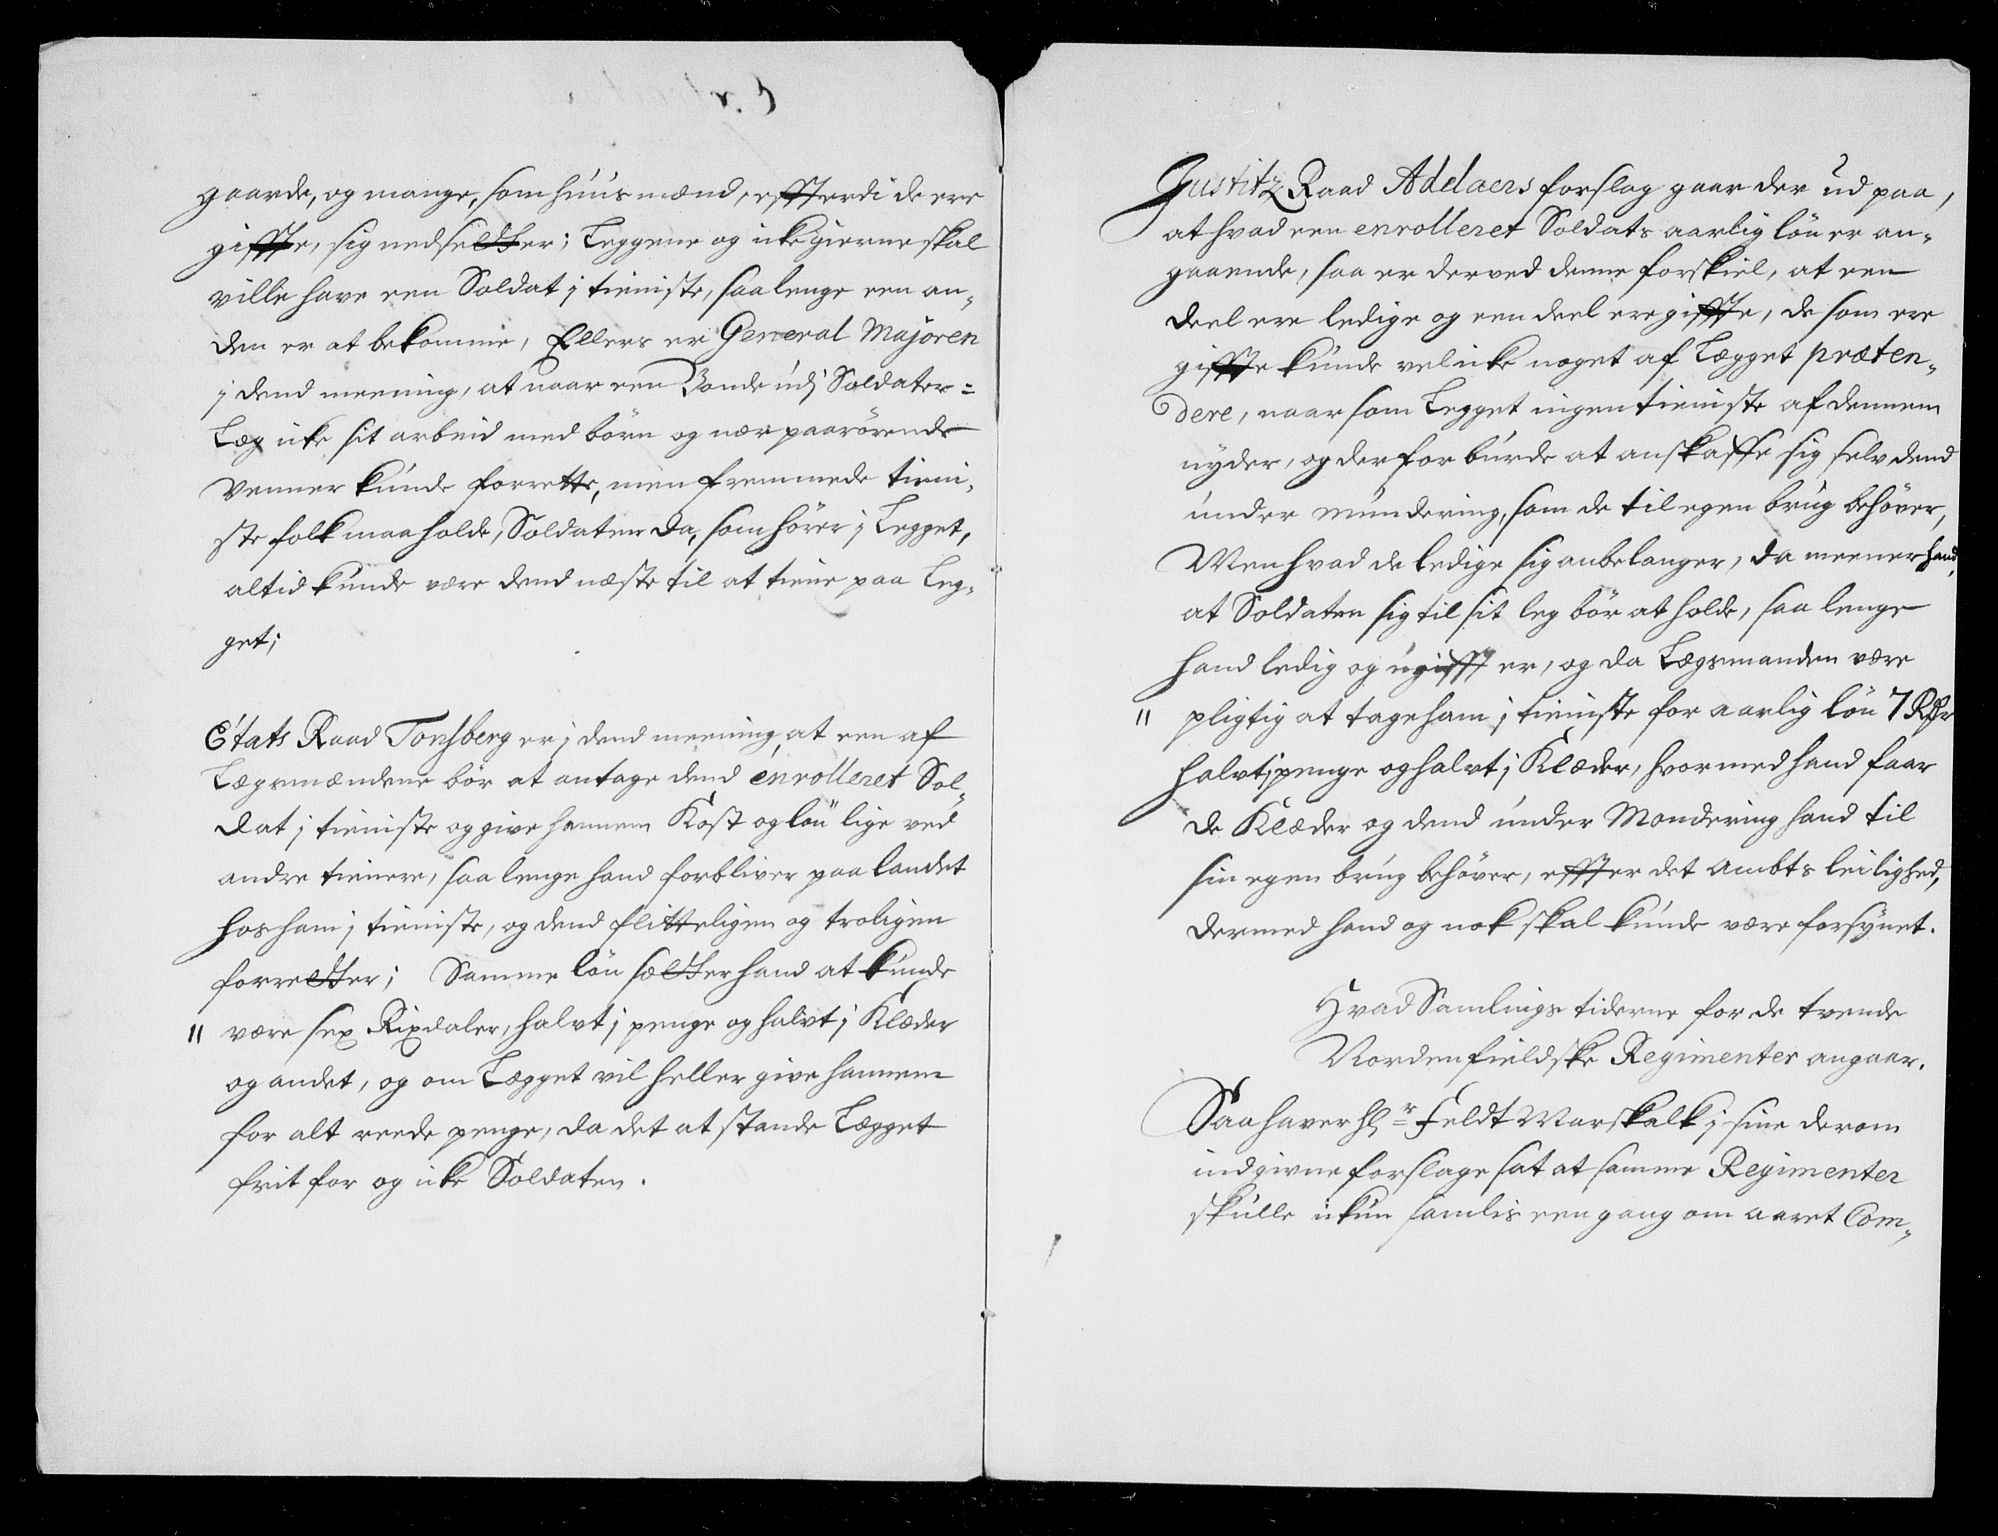 gaarde, og mange, som huus mænd, effterdi de ere
giffte, sig nedseldter; Leggene og icke gierne skal
ville have een Soldat i tieniste, saa lenge een an„
den er at bekomme, Ellers er General Majoren
i dend meening, at naar een Bonde udj Soldater=
Læg icke sit arbeid med börn og nær paarörende
Venner kunde forrette, men fremmede tieni„
ste folk maa holde, Soldaten da, som hörer i Legget,
altid kunde være dend næste til at tiene paa Leg„
get;
Etats Raad Tonsberg er i dend meening, at een af
Lægsmændene bör at antage dend enrolleret Sol„
dat i tieniste og give hannem Kost og lön lige ved
andre tienere, saa lenge hand forbliver paa landet
hos ham i tieniste, og dend flitteligen og troligen
forreldter; Samme lön sældter hand at kunde
" være sex Rixdaler, halvt i penge og halvt i Klæder
og andet, og om Legget vil heller give hannem
for alt reede penge, da det at stande Lægget
frit for og icke Soldaten.
Justitz Raad Adelaers forslag gaar der ud paa,
at hvad een enrolleret Soldats aarlig lön er an„
gaaende, saa er derved denne forskiel, at een
deel ere ledige og een deel ere giffte, de som ere
giffte kunde vel icke noget af Lægget præten„
dere, naar som Legget ingen tieniste af dennem
nyder, og derfor burde at anskaffe sig selv dend
under mundering, som de til egen brug behöver,
Men hvad de ledige sig anbelanger, da meener hand,
at Soldaten sig til sit leg bör at holde, saa lenge
hand ledig og ugifft er, og da Lægsmanden være
" pligtig at tage ham i tieniste for aarlig lön 7 Rdr
halvt i penge og halvt i Klæder, hvormed hand faar
de Klæder og dend under Mondering hand til
sin egen brug behöver, effter det Ambts leilighed,
dermed hand og nok skal kunde være forsynet.
Hvad Samlings tiderne for de trende
Nordenfieldske Regimenter angaar.
Saa haver Hr Feldt Marskalk i sine derom
indgivne forslage sat at samme Regimenter
skulle ickun samlis een gang om aaret Com„